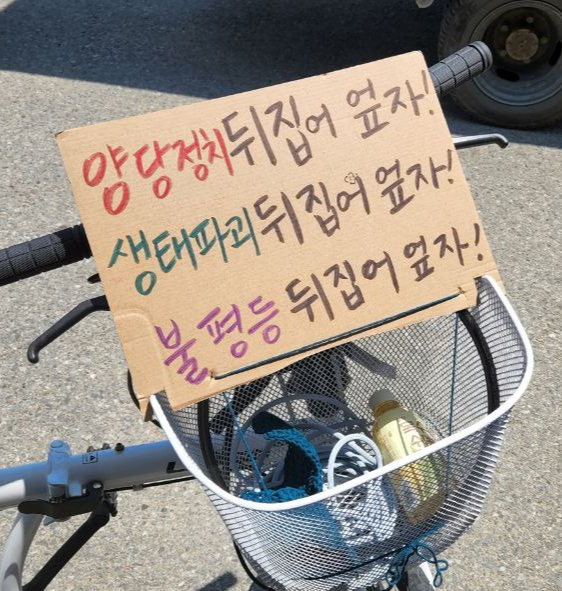 양당정치 뒤집어 엎자!
생태파괴 뒤집어 엎자!
불평등 뒤집어 엎자!